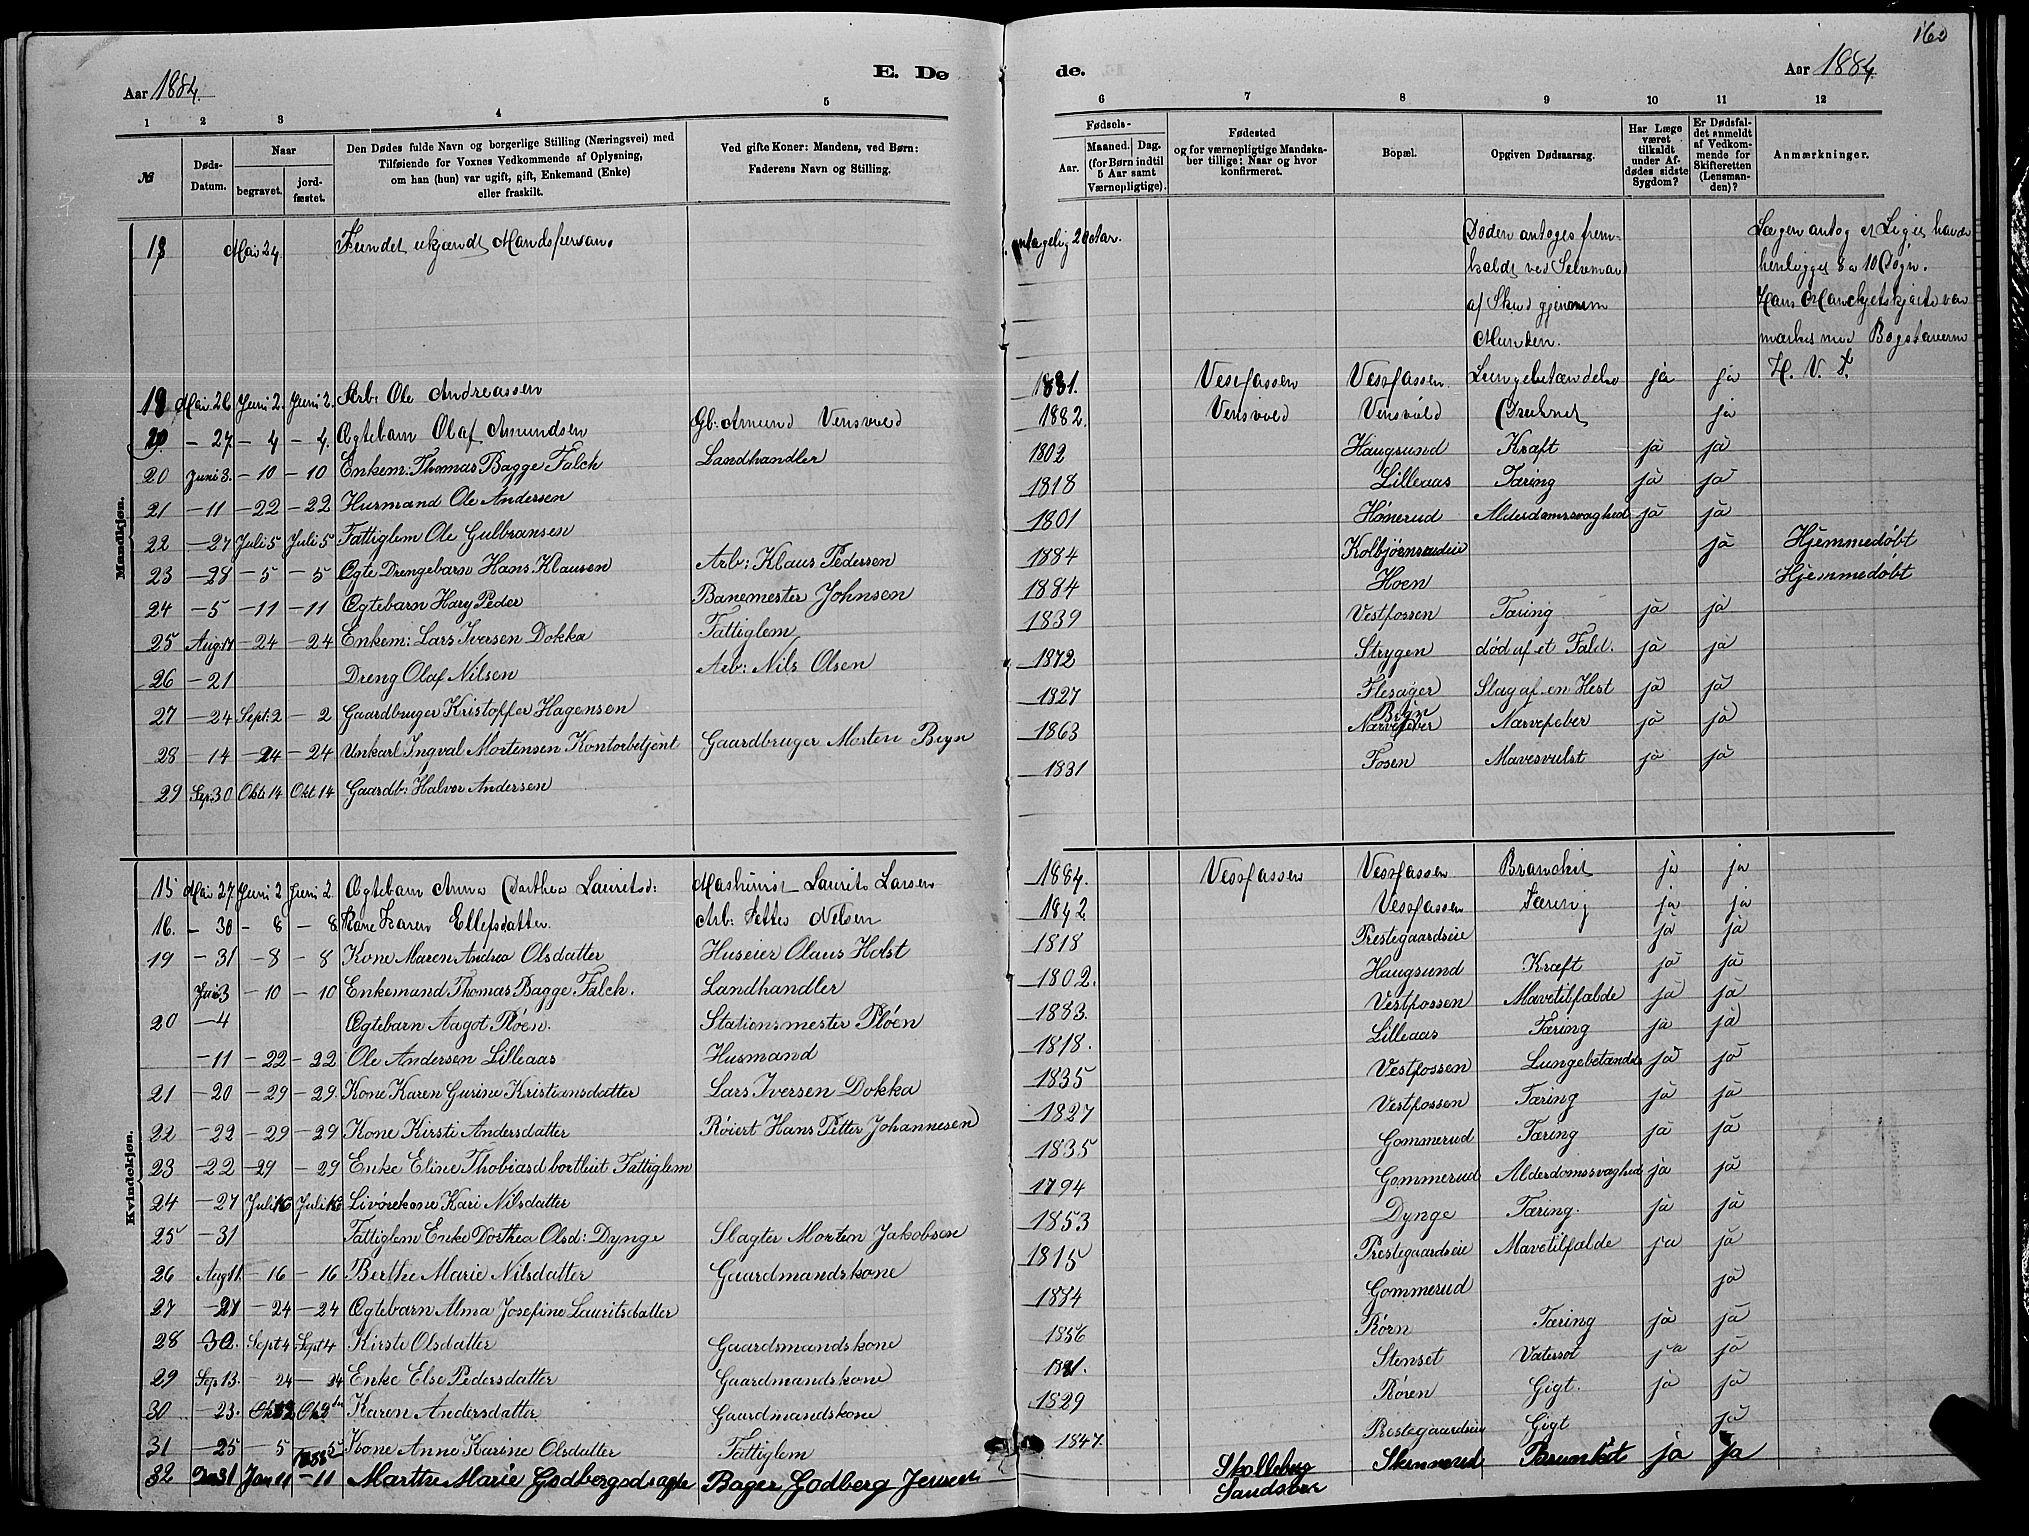 160
Aar 1884.
E. Dø
de.
Aar 1884.
1 2 3 4 5 6 7 8 9 10 11 12
№
Døds-Datum.
Naar
begravet.
jord-fæstet.
Den Dødes fulde Navn og borgerlige Stilling (Næringsvei) med
Tilføiende for Voxnes Vedkommende af Oplysning,
om han (hun) var ugift, gift, Enkemand (Enke)
eller fraskilt.
Ved gifte Koner: Mandens, ved Børn:
Faderens Navn og Stilling.
Fødsels-
Aar.
Maaned. Dag.
(for Børn indtil
5 Aar samt
Værnepligtige).
Fødested
og for værnepligtige Mandska-
ber tillige: Naar og hvor
konfirmeret.
Bopæl.
Opgiven Dødsaarsag.
Har Læge
været
tilkaldt
under Af-
dødes sidste
Sygdom?
Er Dødsfal-
det anmeldt
af Vedkom-
mende for
Skifteretten
(Lensman-
den)?
Anmærkninger.
Mandkjøn.
18 Mai 24 Fundet ukjendt Mandsperson. antagelig 20 Aar. Døden antoges frem- Lægen antog at Liget havde
kaldt ved Selvmord henligget 8 a 10 Døgn.
af Skud gjennem Hans Manchetskjorte var
Munden. mærket med Bogstaverne
19 Mai 26 Juni 2. Juni 2. Arb: Ole Andreassen 1831. Vestfossen Vestfossen Lungebetændelse ja ja H. V. F.
– 27. – 4 – 4. Ægtebarn Olaf Amundsen Gb: Amund Vensvold 1882. Vensvold Vensvold Druknet ja
20 Juni 3. – 10 – 10 Enkem: Thomas Bagge Falch Landhandler 1802 Haugsund Kræft ja ja
21 – 11 – 22 – 22 Husmand Ole Andersen 1818 Lilleaas Tæring ja ja
22 – 27 Juli 5 Juli 5 Fattiglem Ole Gulbransen 1801 Hønerud Alderdomssvaghed ja ja
23 – 28 – 5 – 5 Ægte Drengebarn Hans Klausen Arb: Klaus Pedersen 1884 Kolbjørnsrudeie ja Hjemmedøbt
24 – 5 – 11 – 11 Ægtebarn Hary Peder Banemester Johnsen 1884 Hoen Hjemmedøbt
25 Aug 17 – 24 – 24 Enkem: Lars Iversen Dokka Fattiglem 1839 Vestfossen Tæring ja ja
26 – 21 Dreng Olaf Nilsen Arb: Nils Olsen 1872 Strygen død af et Fald. ja ja
27 – 24 Sept: 2 – 2 Gaardbruger Kristoffer Hagensen 1827 Flesager Slag af en Hest ja ja
28 – 14 – 24 – 24 Unkarl Ingval Mortensen Kontorbetjent Gaardbruger Morten Beyn 1863 Nærvefeber ja ja
29 Sep: 30 Okt 14 Okt 14 Gaardb: Halvor Andersen 1831 Fosen Mavesvulst ja ja
Kvindekjøn.
15 Mai 27 Juni 2 Juni 2. Ægtebarn Anna Dorthea Lauritsd: Maskinist Laurits Larsen 1884. Vestfossen Vestfossen Bronchit ja ja
16. – 30 – 8 – 8 Kone Karen Ellefsdatter. Arb: Petter Nilsen 1842 Vestfossen Tæring ja ja
19 – 31 – 8 – 8 Kone Maren Andrea Olsdatter Huseier Olaus Holst 1818 Prestegaardseie ja ja
Juni 3 – 10 – 10 Enkemand Thomas Bagge Falch. Landhandler 1802. Haugsund Kræft ja ja
20 – 4 Ægtebarn Aagot Pløen. Stationsmester Pløen 1883. Vestfossen Mavetilfælde ja ja
– 11 – 22 – 22 Ole Andersen Lilleaas Husmand 1818. Lilleaas Tæring ja ja
21 – 20 – 29 – 29. Kone Karen Gurine Kristiansdatter Lars Iversen Dokka 1835 Vestfossen Lungebetændelse ja ja
22 – 22 – 29 – 29. Kone Kirsti Andersdatter Røiert Hans Petter Johannesen 1827 Vestfossen Tæring ja ja
23 – 22 – 29 – 29 Enke Eline Thobiasd bortleiet Fattiglem 1835 Gommerud Tæring ja ja
24 – 27 Juli 16 Juli 16 Livørekone Kari Nilsdatter 1794 Gommerud Alderdomssvaghed ja ja
25 – 31 Fattiglem Enke Dorthea Olsd: Dynge Slagter Morten Jakobsen 1853 Dynge Tæring. ja ja
26 Aug 11. – 16 – 16 Berthe Marie Nilsdatter Gaardmandskone 1815 Prestegaardseie Mavetilfælde ja ja
27 – 21 – 24 – 24 Ægtebarn Alma Josefine Lauritsdatter 1884 Gommerud ja
28 – 30. Sept 4 Sept 4 Kirsti Olsdatter Gaardsmandskone 1856 Rørn Tæring ja ja
29 Sep 13. – 24 – 24 Enke Else Pedersdatter Gaardmandskone Stenset Vatersot ja ja
30 – 23. Karen Andersdatter Gaardmandskone 1829 Røren Gigt. ja ja
31 – 25 – 5 – 5 Kone Anne Karine Olsdatter Fattiglem 1847. Prestegaardseie Gigt ja
32 31 Jan 11 – 11 Marthe Marie Godbergsdagte Bager Godberg Jensen Skolleborg Sandsvær Skinnerud ja ja